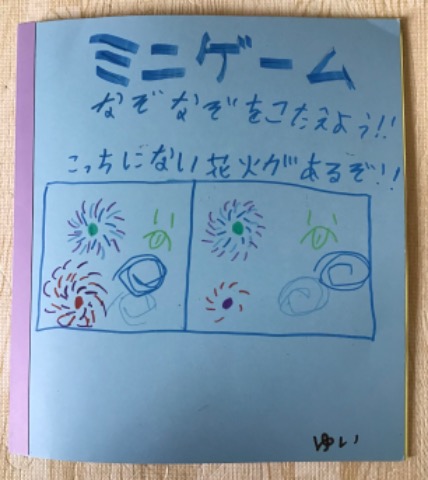 ミニゲーム
なぞなぞをこたえよう!!
こっちにない花火があるぞ!!
ゆい